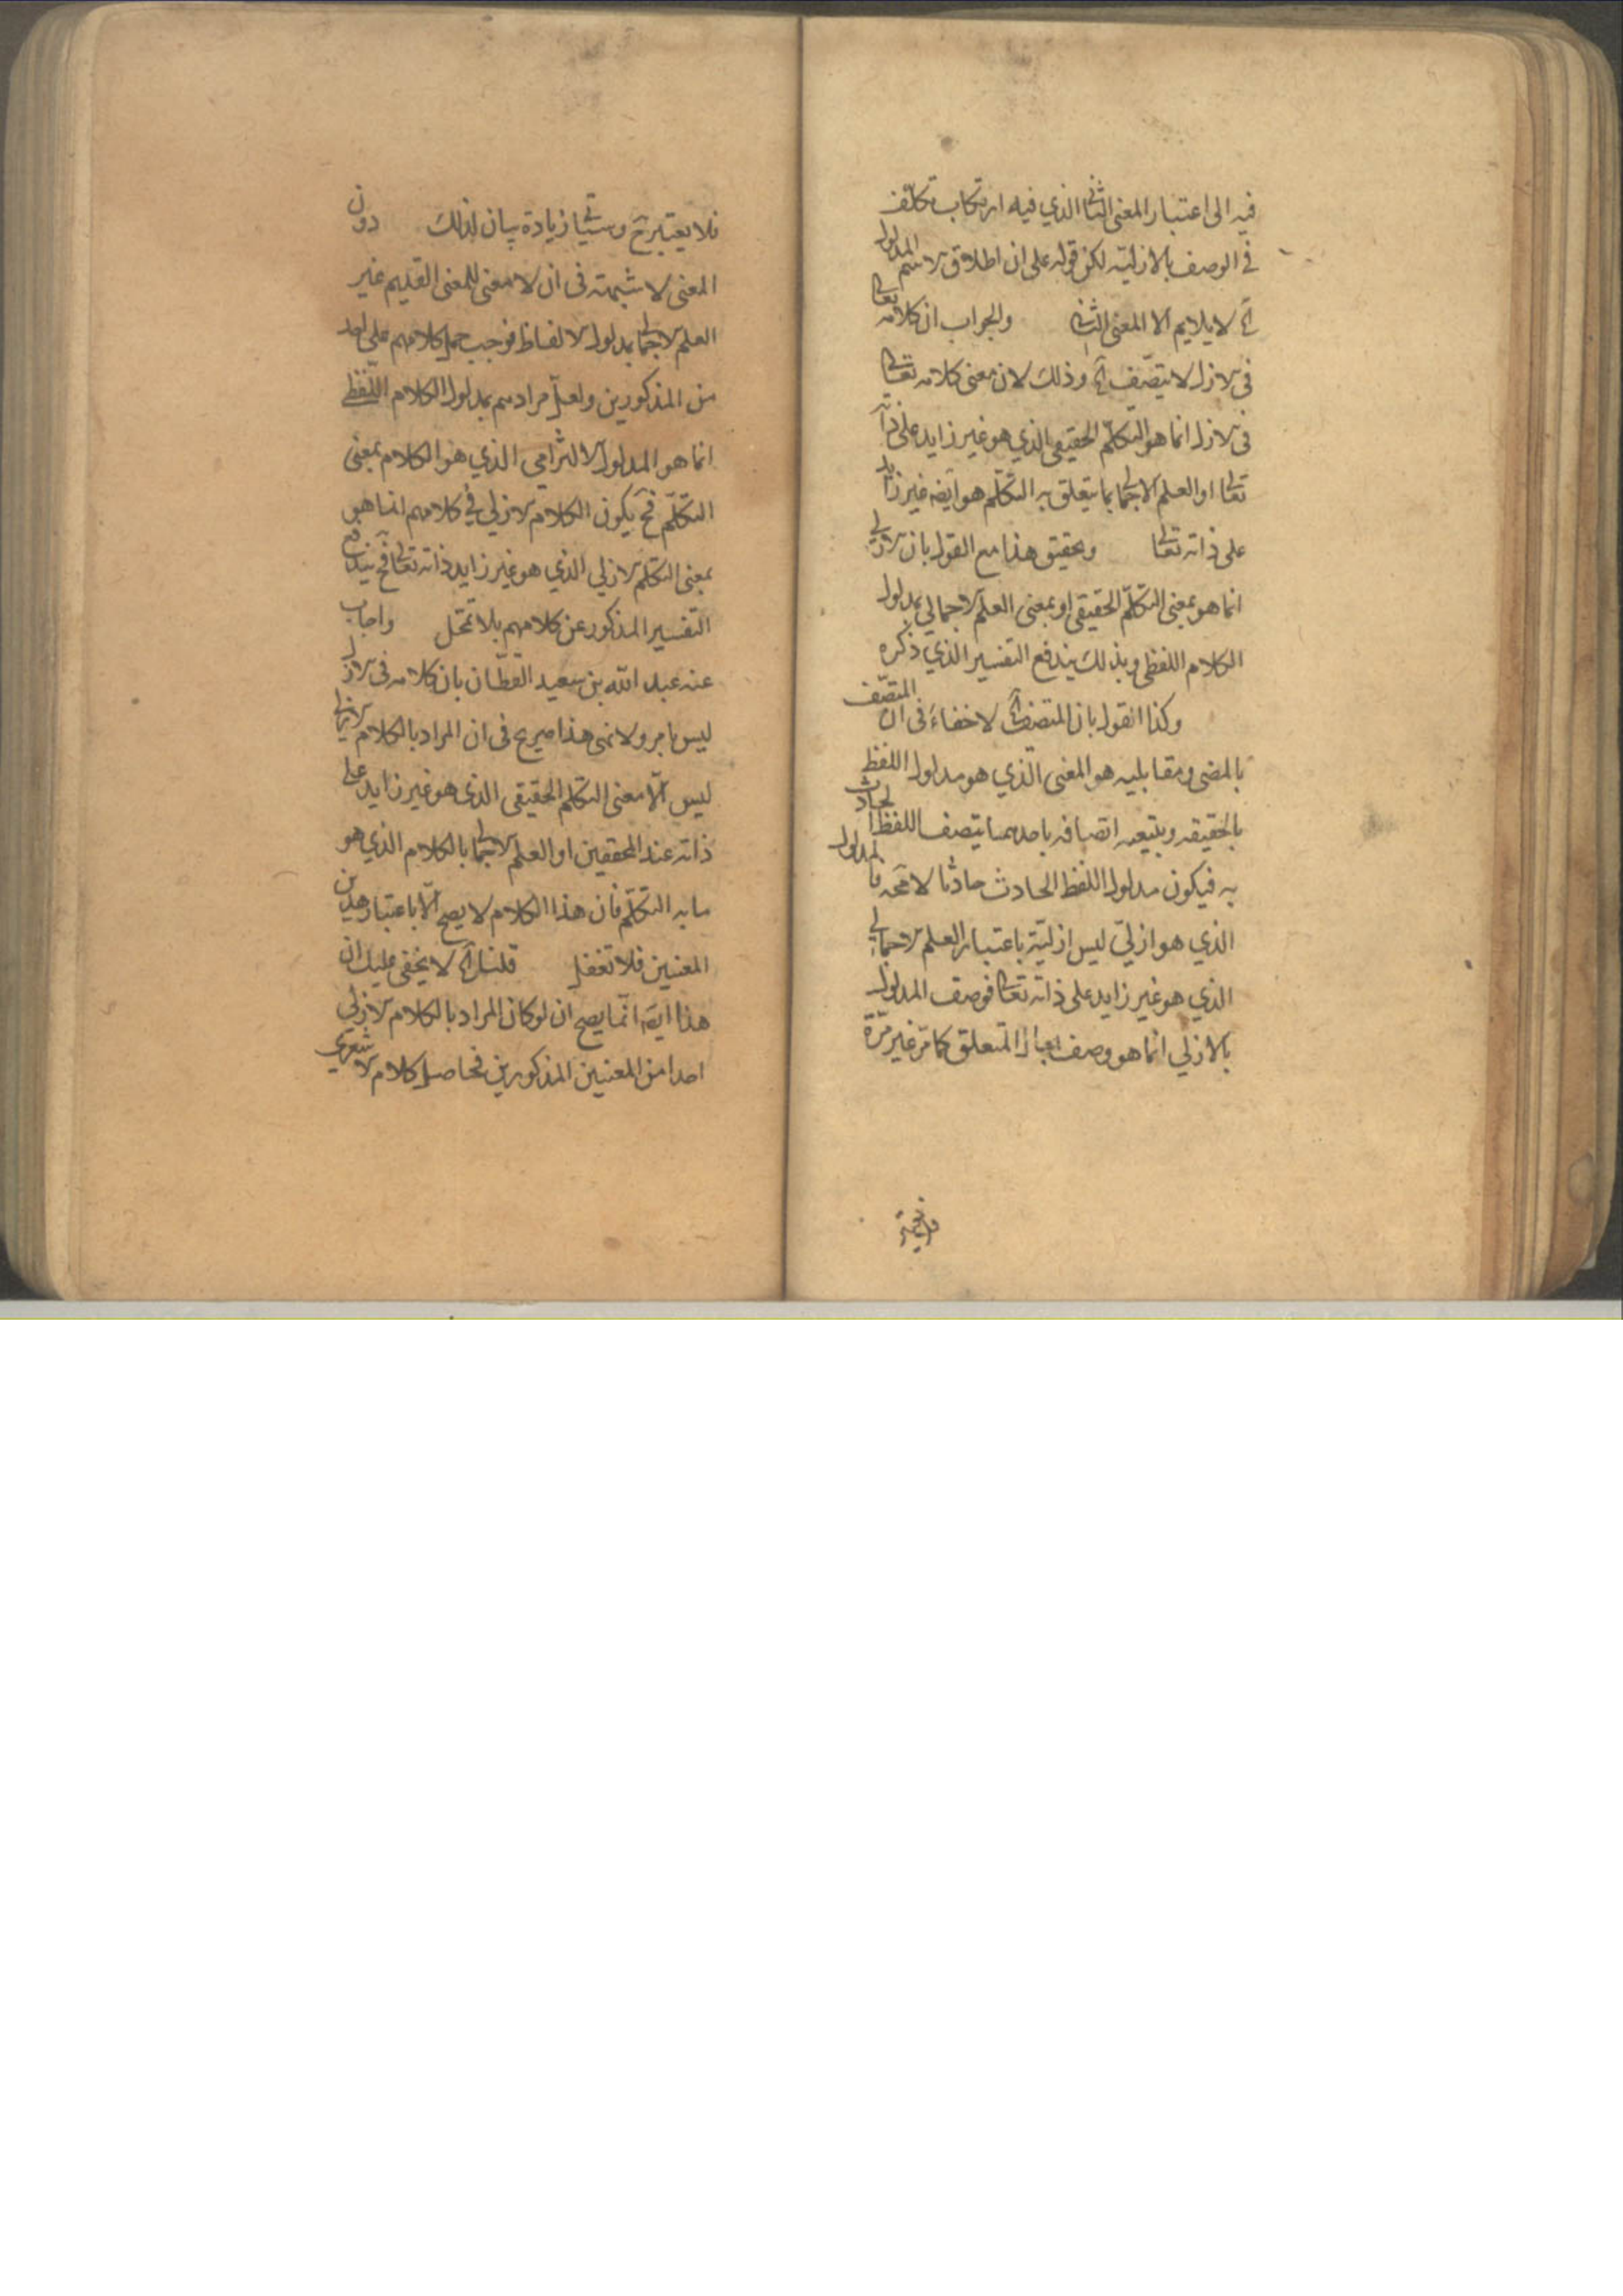 فيه الى اعتبار المعنى الثانى الذي فيه ارتكاب تكلف
في الوصف بالازلية لكن قوله على ان اطلاق الاسم المدلول
آه لا يلايم الا المعنى الثانى والجواب ان كلامه تعالى
فى الازل لا يتصف آه وذلك لان معنى كلامه تعالى
فى الازل انما هو التكلم الحقيقى الذي هو غير زايد على ذاته
تعالى او العلم الاجمالى بما يتعلق به التكلم هو ايضه غير زايد
على ذاته تعالى وتحقيق هذا مع القول بان الازلي
انما هو بمعنى التكلم الحقيقى او بمعنى العلم الاجمالي بمدلول
الكلام اللفظى وبذلك يندفع التفسير الذي ذكره
وكذا القول بان المتصف آه لا خفاء فى ان المتصف
بالمضى ومقابليه هو المعنى الذي هو مدلول اللفظ
بالحقيقه وبتبعيه اتصافه باحدهما يتصف اللفظ الحادث
به فيكون مدلول اللفظ الحادث حادثا لا محه فالمدلول
الذي هو ازلي ليس ازليته باعتبار العلم الاجمالي
الذي هو غير زايد على ذاته تعالى فوصف المدلول
بالازلي انما هو وصف بحال المتعلق كما مر غير مرة
فلا يعتبر آه وسيأتى زيادة بيان لذلك دون
المعنى لا شبهته فى ان لا معنى للمعنى القديم غير
العلم الاجمالى بمدلول الالفاظ فوجب حمل كلامهم على احد
من المذكورين ولعل مرادهم بمدلول الكلام اللفظى
انما هو المدلول الالتزامى الذي هو الكلام بمعنى
التكلم فح يكون الكلام الازلي في كلامهم انما هو
بمعنى التكلم الازلي الذي هو غير زايد ذاته تعالى فح يندفع
التفسير المذكور عن كلامهم بلا تمحل واجاب
عنه عبد الله بن سعيد القطان بان كلامه فى الازل
ليس بامر ولا نهى هذا صريح فى ان المراد بالكلام الازلي
ليس الا معنى التكلم الحقيقى الذى هو غير زايد على
ذاته عند المحققين او العلم الاجمالى بالكلام الذي هو
ما به التكلم فان هذا الكلام لا يصح الا باعتبار هذين
المعنيين فلا تغفل قلنا آه لا يخفى عليك ان
هذا ايضه انما يصح ان لو كان المراد بالكلام الازلي
احدا من المعنيين المذكورين فحاصل كلام الاشعري